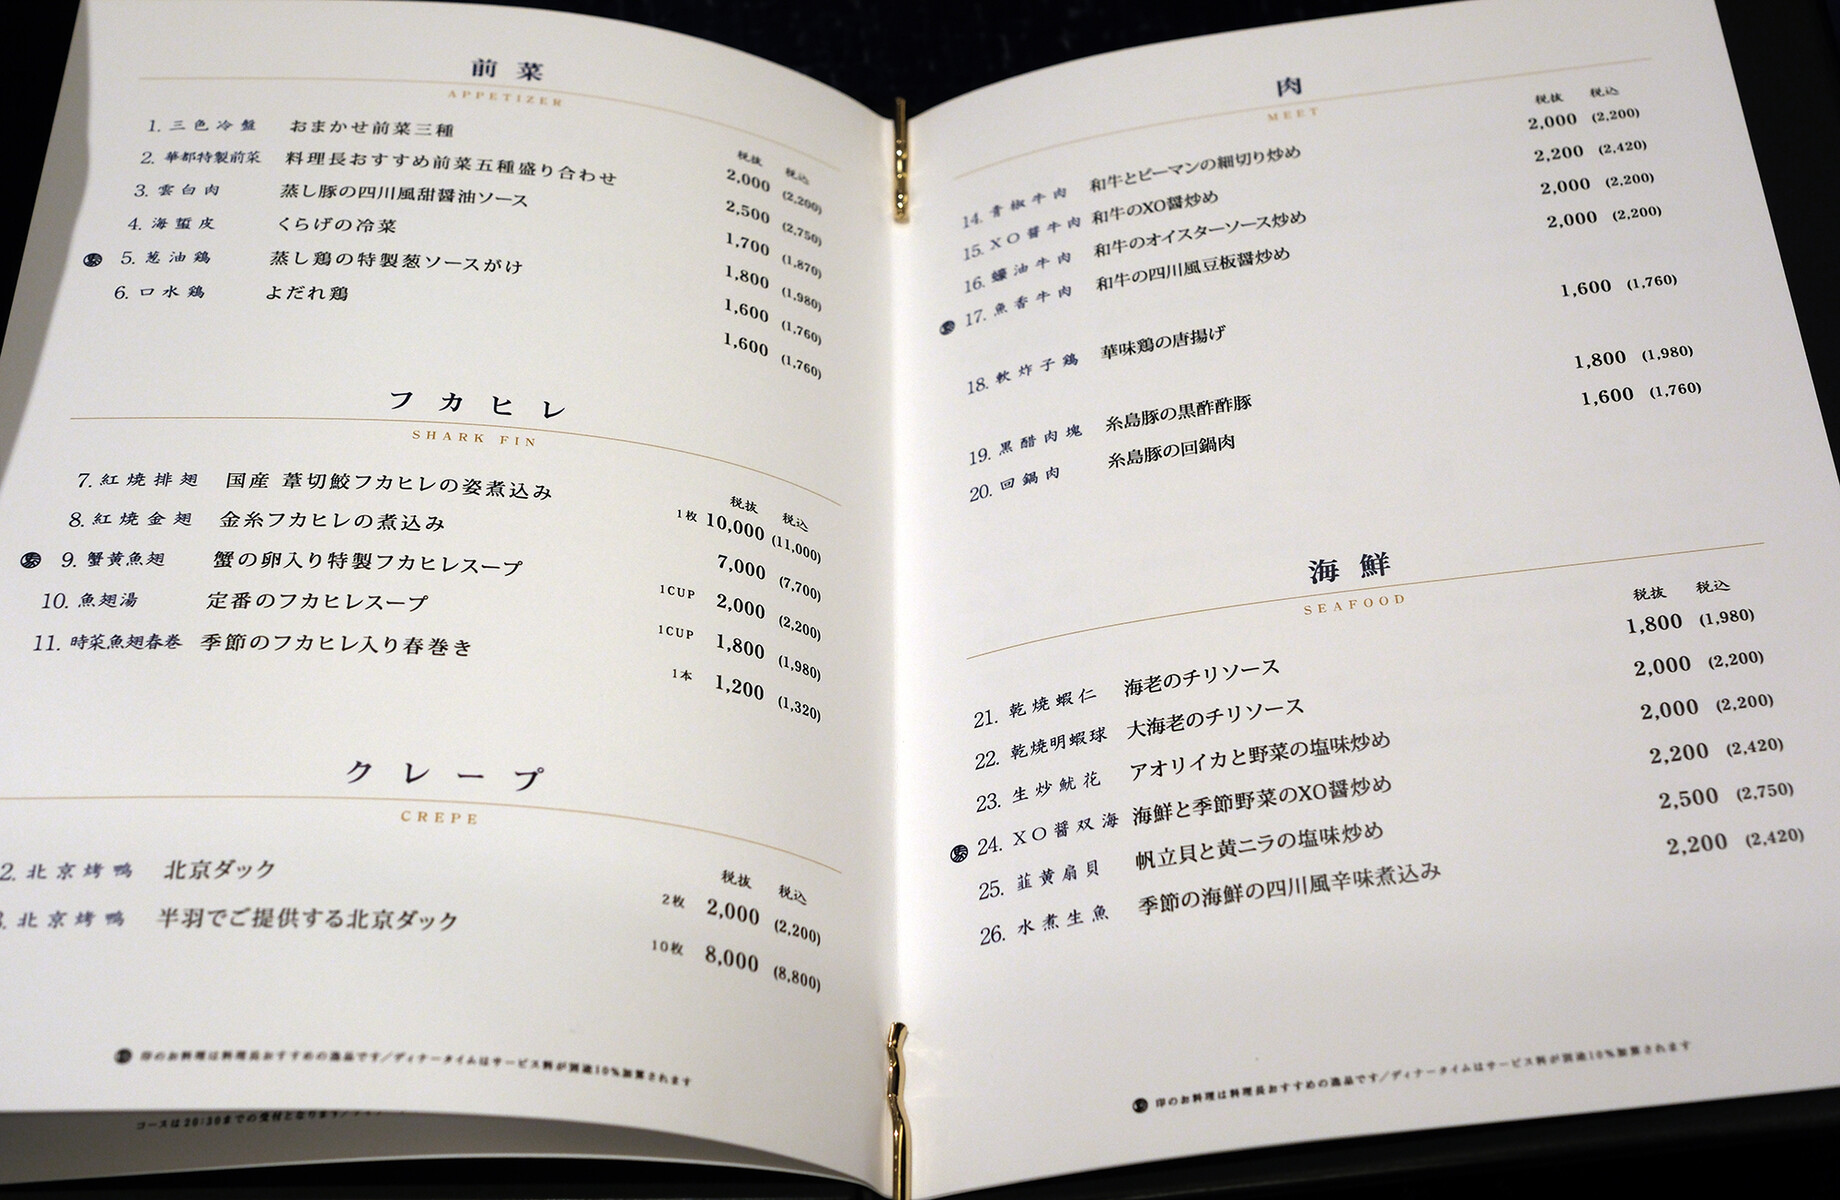 前菜
APPETIZER
税抜 税込
1. 三色冷盤 おまかせ前菜三種 2,000 (2,200)
2. 華都特製前菜 料理長おすすめ前菜五種盛り合わせ 2,500 (2,750)
3. 雲白肉 蒸し豚の四川風甜醤油ソース 1,700 (1,870)
4. 海蜇皮 くらげの冷菜 1,800 (1,980)
5. 葱油鶏 蒸し鶏の特製葱ソースがけ 1,600 (1,760)
6. 口水鶏 よだれ鶏 1,600 (1,760)
フカヒレ
SHARK FIN
税抜 税込
7. 紅焼排翅 国産 葦切鮫フカヒレの姿煮込み 1枚 10,000 (11,000)
8. 紅焼金翅 金糸フカヒレの煮込み 7,000 (7,700)
9. 蟹黄魚翅 蟹の卵入り特製フカヒレスープ 1CUP 2,000 (2,200)
10. 魚翅湯 定番のフカヒレスープ 1CUP 1,800 (1,980)
11. 時菜魚翅春巻 季節のフカヒレ入り春巻き 1本 1,200 (1,320)
クレープ
CREPE
税抜 税込
2. 北京烤鴨 北京ダック 2枚 2,000 (2,200)
. 北京烤鴨 半羽でご提供する北京ダック 10枚 8,000 (8,800)
印のお料理は料理長おすすめの逸品です/ディナータイムはサービス料が別途10%加算されます
コースは20:30までの受付となります/
肉
MEET
税抜 税込
14. 青椒牛肉 和牛とピーマンの細切り炒め 2,000 (2,200)
15. XO醤牛肉 和牛のXO醤炒め 2,200 (2,420)
16. 蠔油牛肉 和牛のオイスターソース炒め 2,000 (2,200)
17. 魚香牛肉 和牛の四川風豆板醤炒め 2,000 (2,200)
18. 軟炸子鶏 華味鶏の唐揚げ 1,600 (1,760)
19. 黒醋肉塊 糸島豚の黒酢酢豚 1,800 (1,980)
20. 回鍋肉 糸島豚の回鍋肉 1,600 (1,760)
海鮮
SEAFOOD
税抜 税込
21. 乾焼蝦仁 海老のチリソース 1,800 (1,980)
22. 乾焼明蝦球 大海老のチリソース 2,000 (2,200)
23. 生炒魷花 アオリイカと野菜の塩味炒め 2,000 (2,200)
24. XO醤双海 海鮮と季節野菜のXO醤炒め 2,200 (2,420)
25. 韮黄扇貝 帆立貝と黄ニラの塩味炒め 2,500 (2,750)
26. 水煮生魚 季節の海鮮の四川風辛味煮込み 2,200 (2,420)
印のお料理は料理長おすすめの逸品です/ディナータイムはサービス料が別途10%加算されます